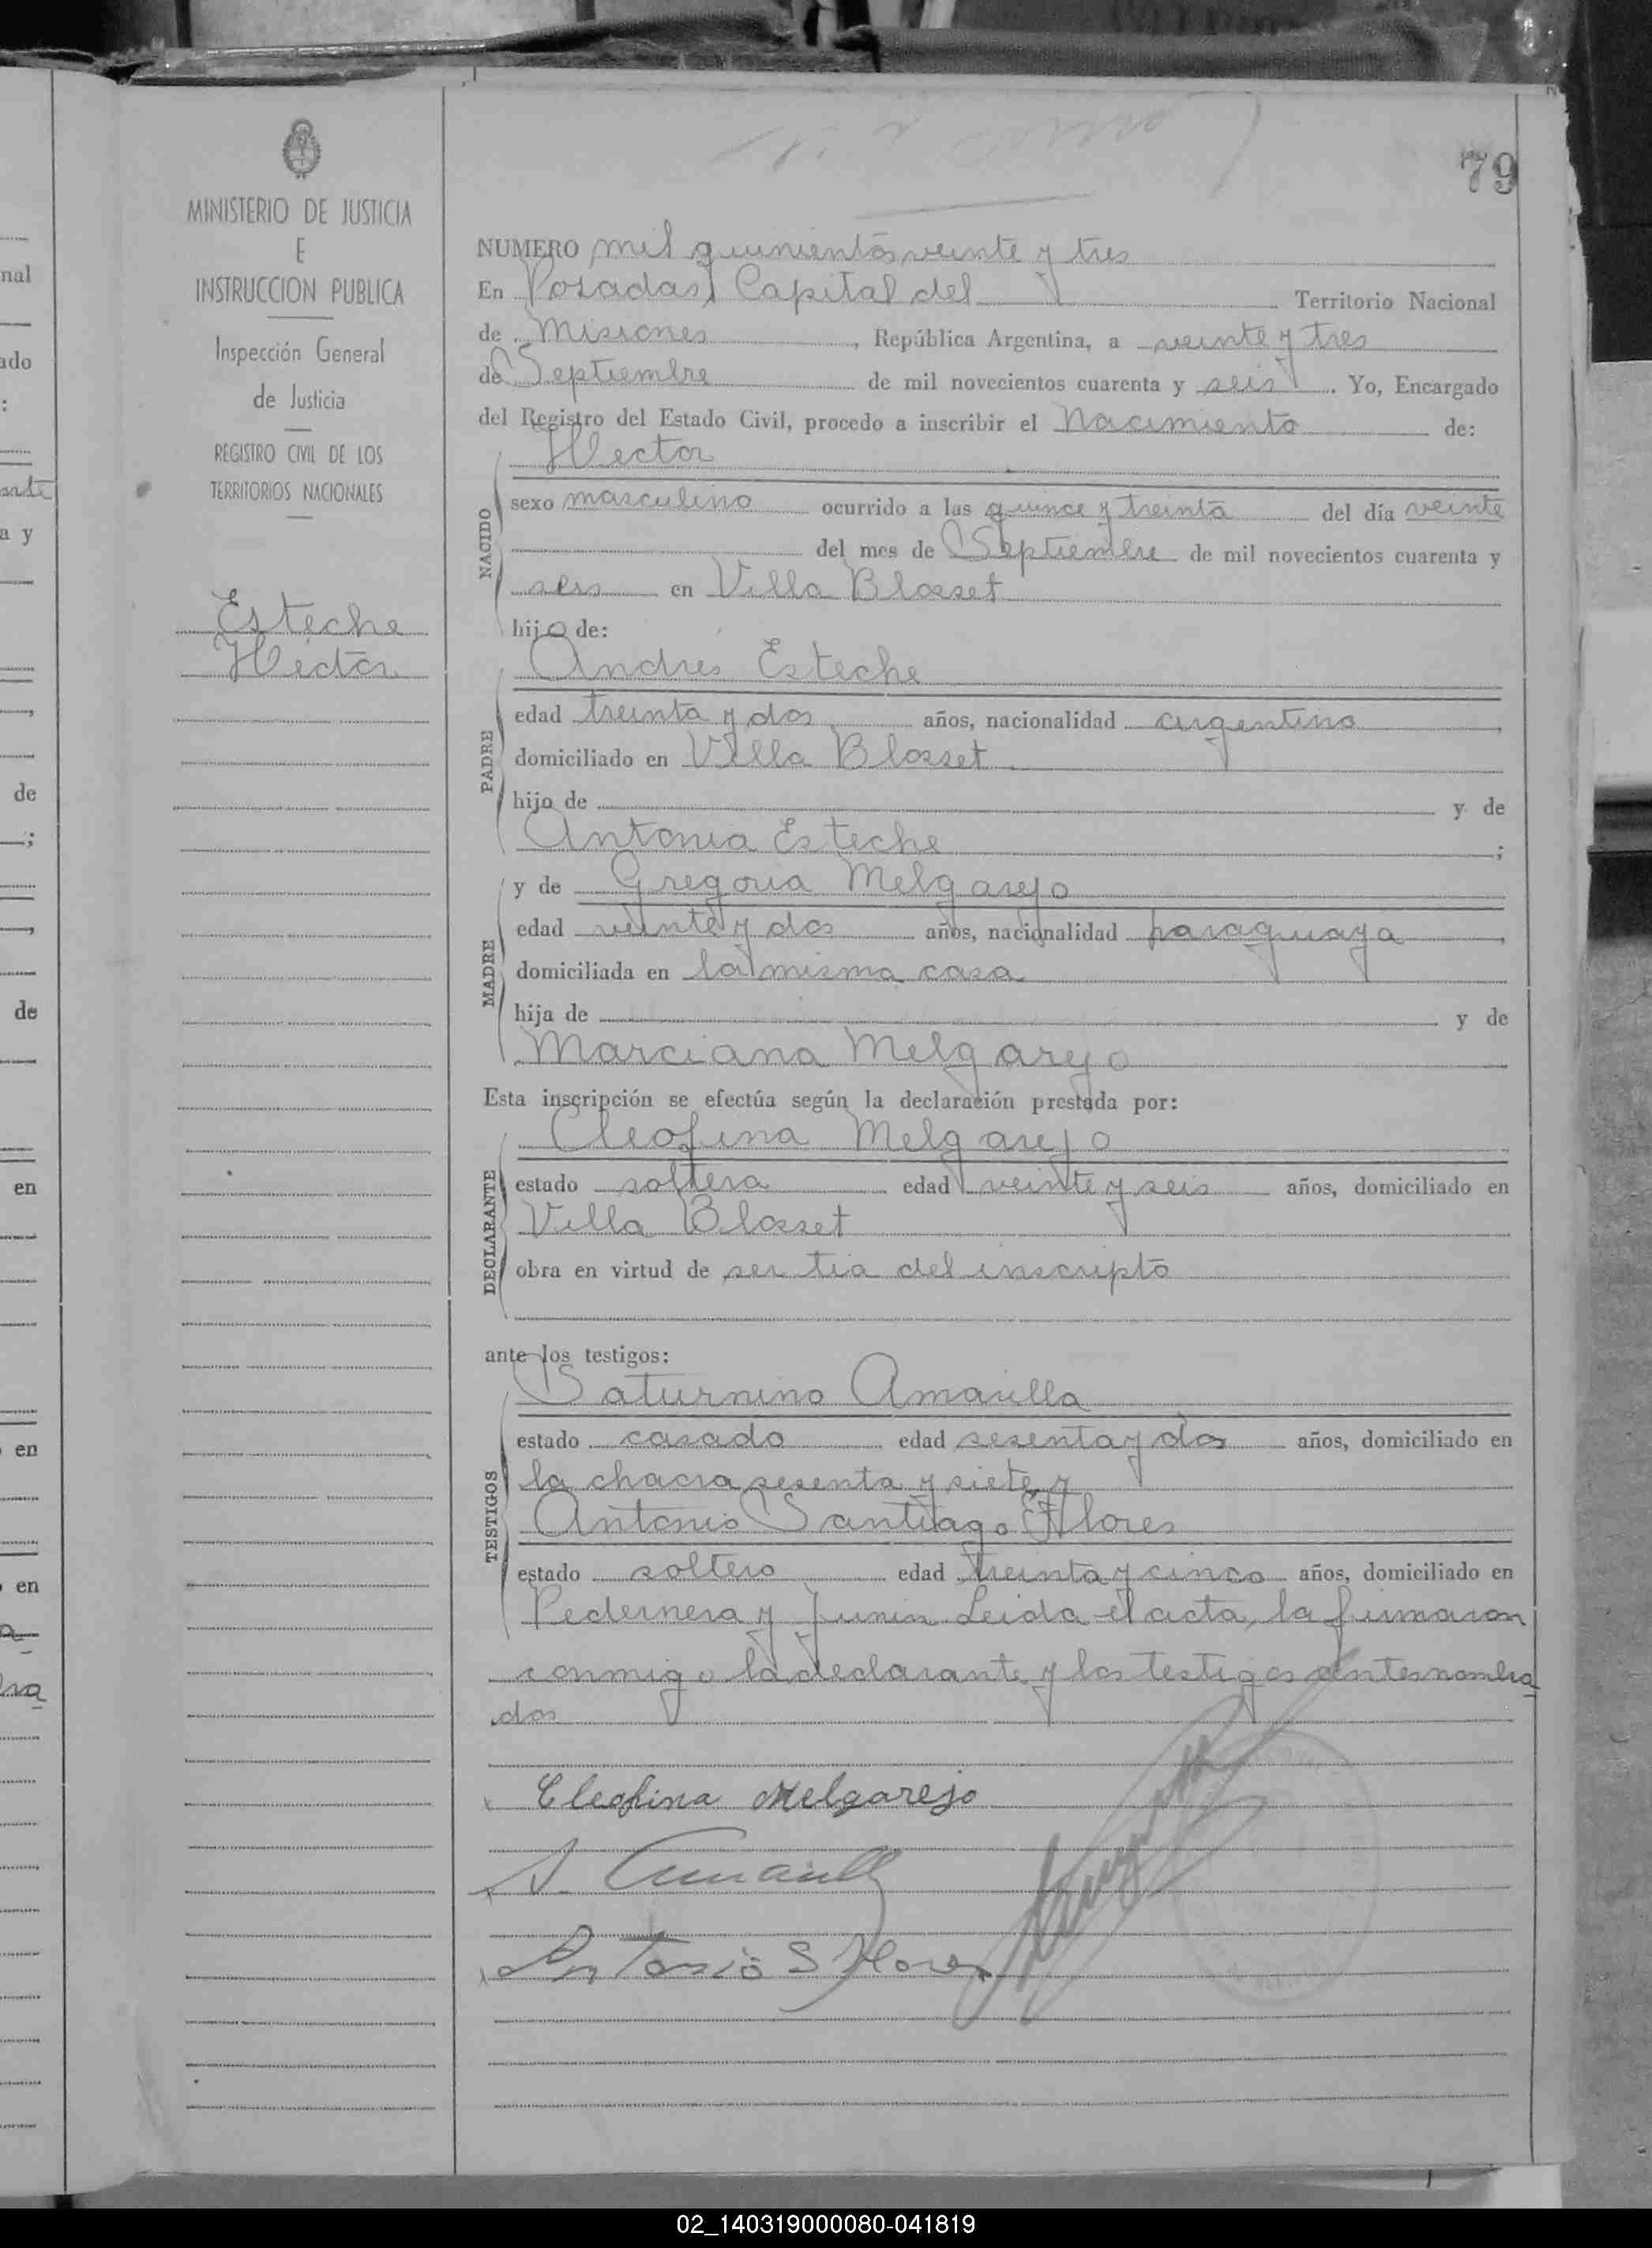 79
MINISTERIO DE JUSTICIA
E
INSTRUCCION PUBLICA
Inspección General
de Justicia
REGISTRO CIVIL DE LOS
TERRITORIOS NACIONALES
Esteche
Hector
NUMERO mil quinientos veinte y tres
En Posadas, Capital del Territorio Nacional
de Misiones, República Argentina, a veinte y tres
de Septiembre de mil novecientos cuarenta y seis. Yo, Encargado
del Registro del Estado Civil, procedo a inscribir el Nacimiento de:
Hector
NACIDO
sexo masculino ocurrido a las quince y treinta del día veinte
del mes de Septiembre de mil novecientos cuarenta y
seis en Villa Blosset
hijo de:
Andres Esteche
PADRE
edad treinta y dos años, nacionalidad argentino,
domiciliado en Villa Blosset
hijo de y de
Antonia Esteche;
y de Gregoria Melgarejo
MADRE
edad veinte y dos años, nacionalidad paraguaya,
domiciliada en la misma casa
hija de y de
Marciana Melgarejo
Esta inscripción se efectúa según la declaración prestada por:
Cleofina Melgarejo
DECLARANTE
estado soltera edad veinte y seis años, domiciliado en
Villa Blosset
obra en virtud de ser tia del inscripto
ante los testigos:
Saturnino Amarilla
TESTIGOS
estado casado edad sesenta y dos años, domiciliado en
la chacra sesenta y siete y
Antonio Santiago Flores
estado soltero edad treinta y cinco años, domiciliado en
Pedernera y Junin Leida el acta, la firmaron
conmigo la declarante y los testigos antesnombra
dos
Cleofina Melgarejo
S. Amarilla
Antonio S Flores
nal
ado
:
a y
de
;
de
en
en
en
02_140319000080-041819